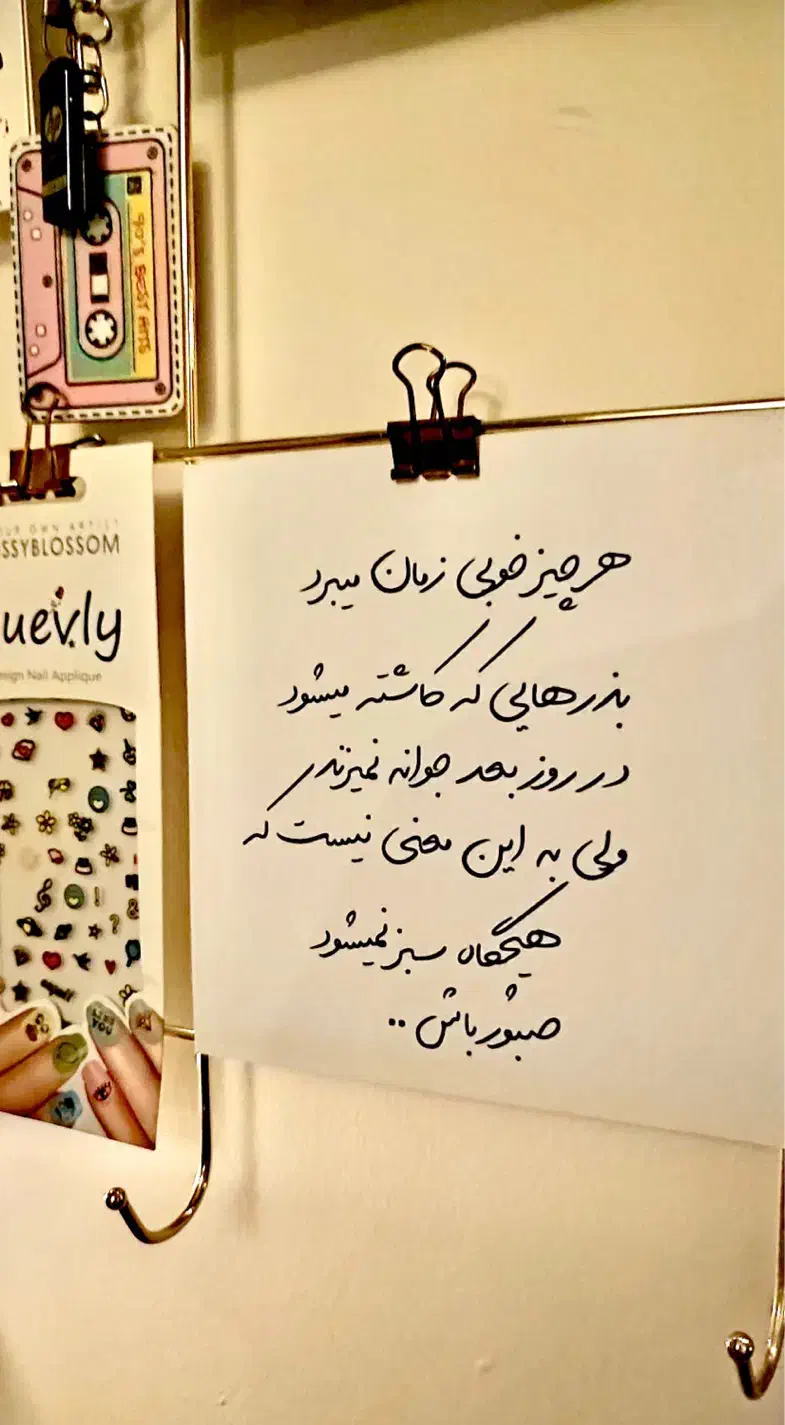 90's BEST HITS
OUR OWN ARTIST
SSYBLOSSOM
uevly
esign Nail Applique
هر چیز خوبی زمان میبرد
بذرهایی که کاشته میشود
در روز بعد جوانه نمیزند
ولی به این معنی نیست که
هیچگاه سبز نمیشود
صبور باش ..